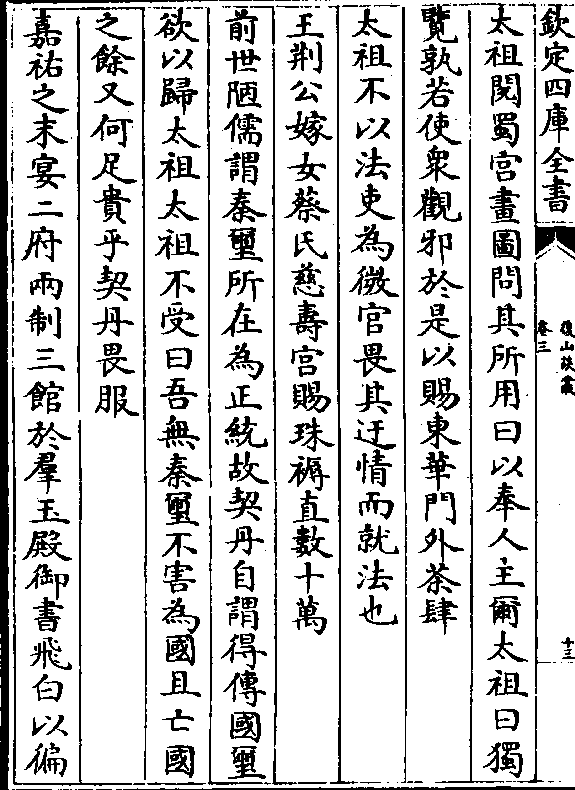 欽定四庫全書
後山談叢
卷三
十三
太祖閱蜀宮畫圖問其所用曰以奉人主爾太祖曰獨
覽孰若使衆觀邪於是以賜東華門外茶肆
太祖不以法吏為微官畏其迂情而就法也
王荆公嫁女蔡氏慈壽宮賜珠褥直數十萬
前世陋儒謂秦璽所在為正統故契丹自謂得傳國璽
欲以歸太祖太祖不受曰吾無秦璽不害為國且亡國
之餘又何足貴乎契丹畏服
嘉祐之末宴二府兩制三館於羣玉殿御書飛白以徧